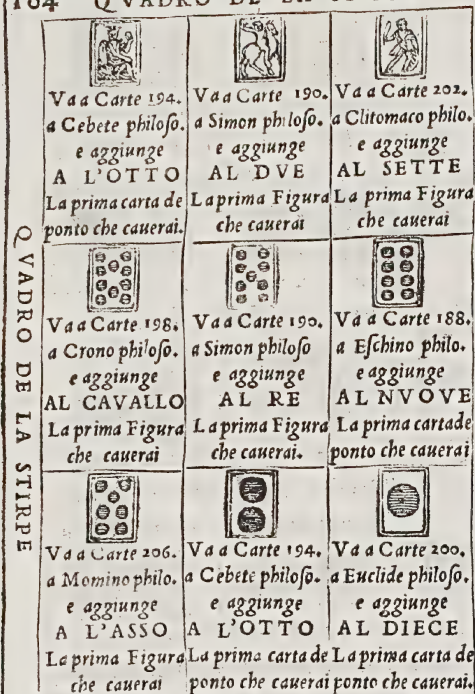 QVADRO DE LA
Va a Carte 194.
a Cebete philoso.
e aggiunge
A L'OTTO
La prima carta de
ponto che cauerai.
Va a Carte 190.
a Simon philoso.
e aggiunge
AL DVE
La prima Figura
che cauerai
Va a Carte 202.
a Clitomaco philo.
e aggiunge
AL SETTE
La prima Figura
che cauerai
Va a Carte 198.
a Crono philoso.
e aggiunge
AL CAVALLO
La prima Figura
che cauerai
Va a Carte 190.
a Simon philoso
e aggiunge
AL RE
La prima Figura
che cauerai.
Va a Carte 188.
a Eschino philo.
e aggiunge
AL NVOVE
La prima carta de
ponto che cauerai
Va a Carte 206.
a Momino philo.
e aggiunge
A L'ASSO
La prima Figura
che cauerai
Va a Carte 194.
a Cebete philoso.
e aggiunge
A L'OTTO
La prima carta de
ponto che cauerai
Va a Carte 200.
a Euclide philoso.
e aggiunge
AL DIECE
La prima carta de
ponto che cauerai.
QVADRO DE LA STIRPE